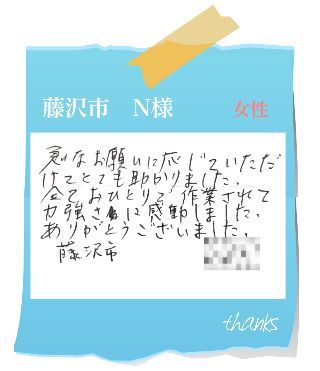 藤沢市 N様 女性
急なお願いに応じていただ
けてとても助かりました。
全ておひとりで作業されてて
力強さに感動しました。
ありがとうございました。
藤沢市
thanks